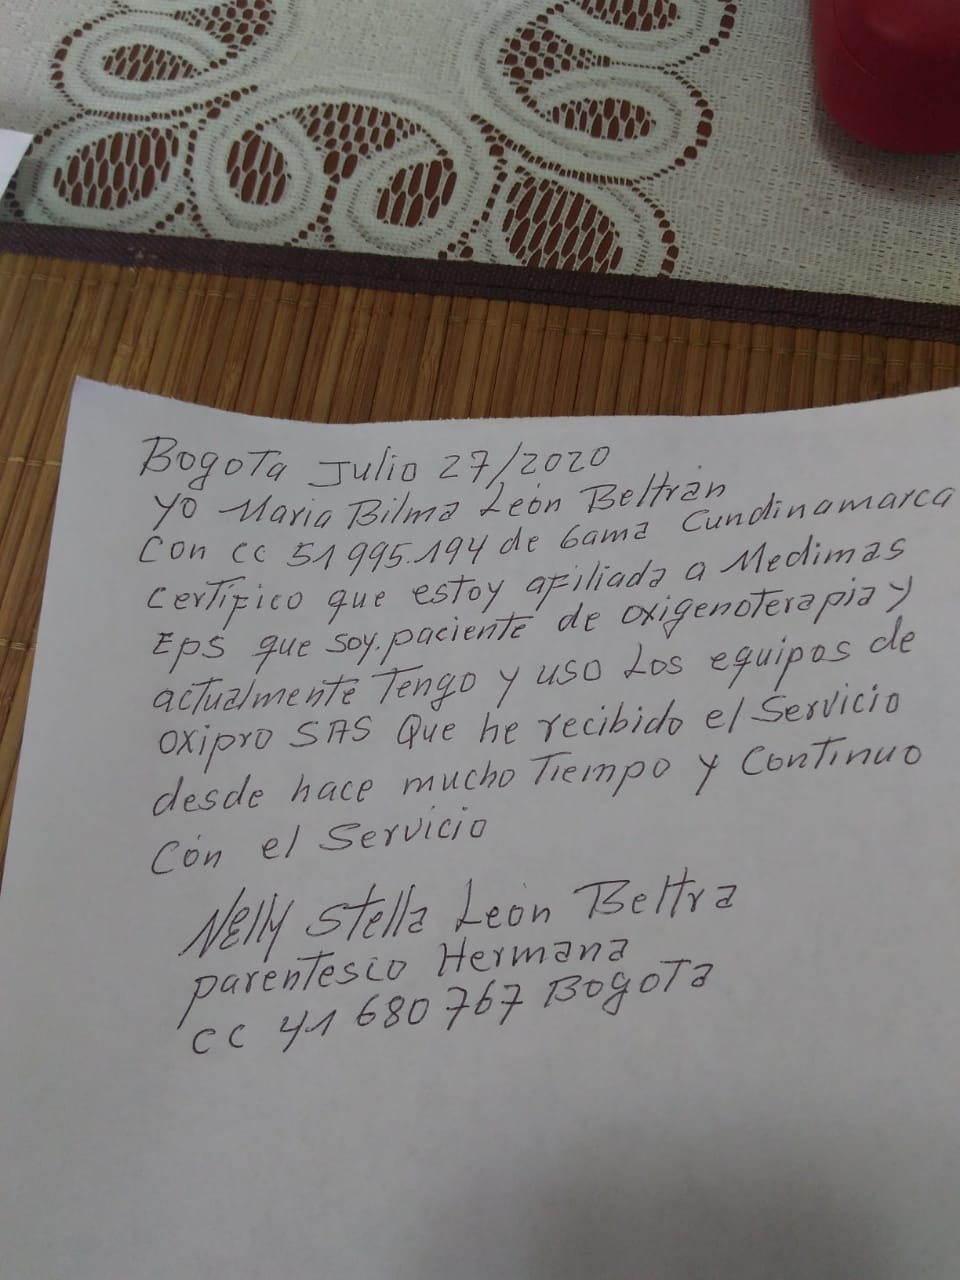 Bogota Julio 27/2020
Yo Maria Bilma León Beltrán
Con cc 51 995.194 de Gama Cundinamarca
certifico que estoy afiliada a Medimas
Eps que soy. paciente de oxigenoterapia y
actualmente Tengo y uso Los equipos de
oxipro SAS Que he recibido el Servicio
desde hace mucho Tiempo y Continuo
Con el Servicio
Nelly Stella León Beltra
parentesco Hermana
cc 41 680 767 Bogota